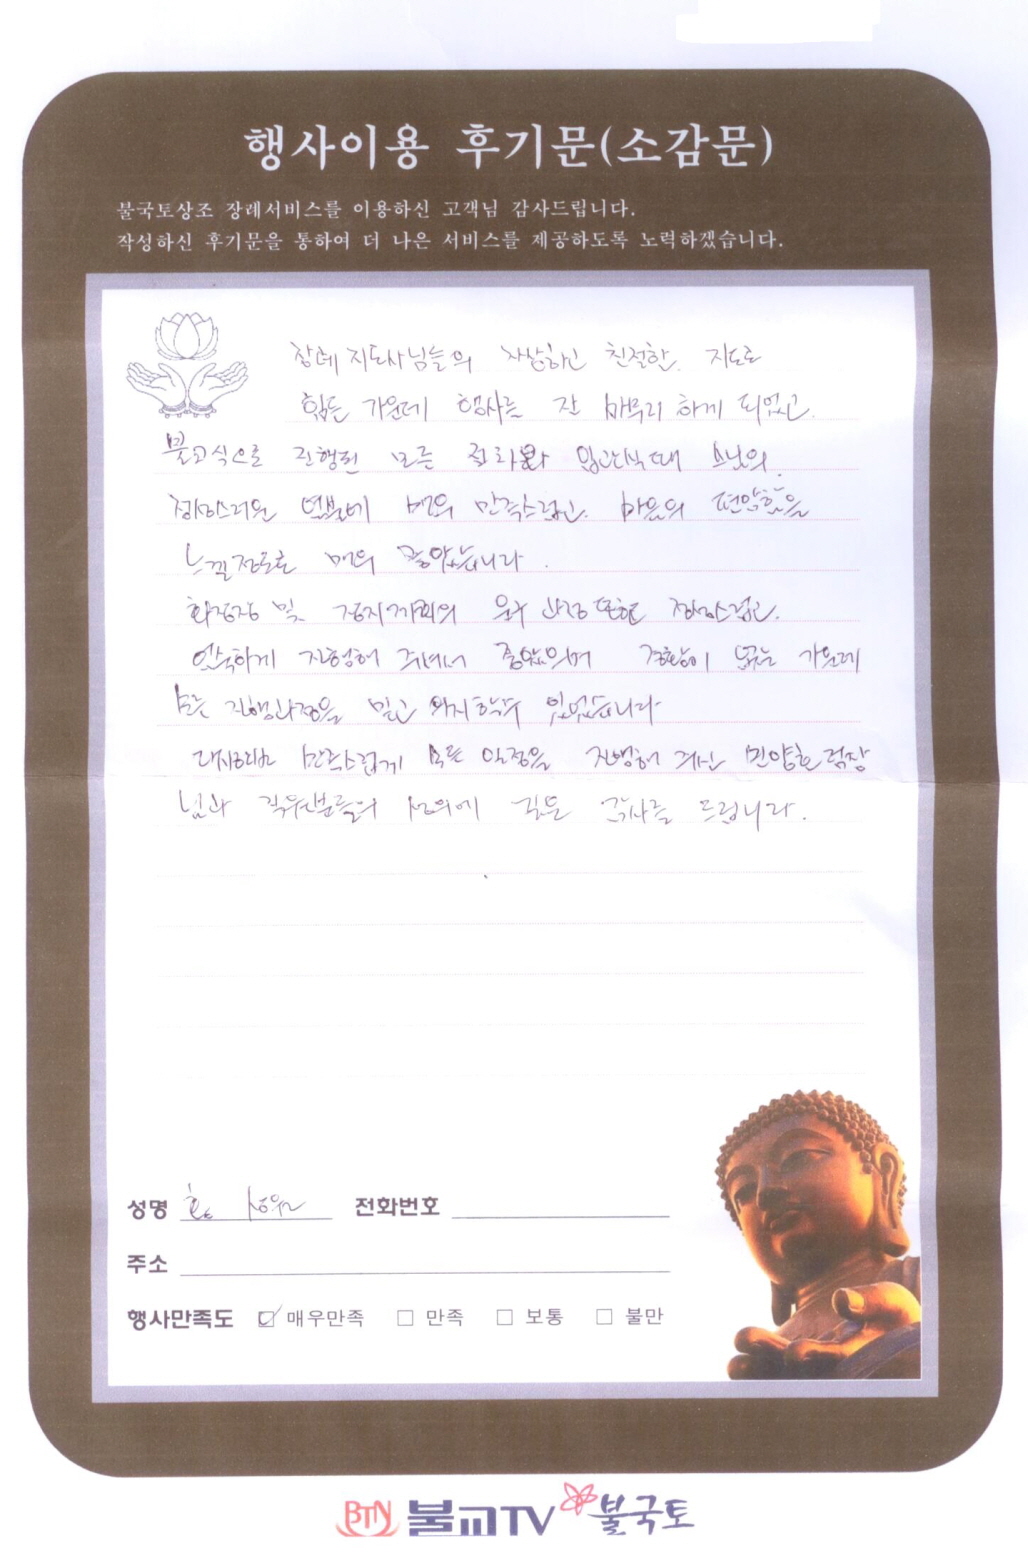 행사이용 후기문(소감문)
불국토상조 장례서비스를 이용하신 고객님 감사드립니다.
작성하신 후기문을 통하여 더 나은 서비스를 제공하도록 노력하겠습니다.
장례지도사님들의 자상하고 친절한 지도로
힘든 가운데 행사를 잘 마무리 하게 되었고.
불교식으로 진행된 모든 절차와 입관식때 스님의
정성스러운 염불에 매우 만족스럽고. 마음의 편안함을
느낄정도로 매우 좋았습니다.
화장장 및 장지까지의 운구 과정 또한 정성스럽고.
엄숙하게 진행해 주셔서 좋았으며 경황이 없는 가운데
모든 진행과정을 믿고 의지할수 있었습니다
만족스럽게 모든 일정을 진행해 주신 민양호 팀장
님과 직원분들의 성의에 깊은 감사를 드립니다.
성명 홍 전화번호
주소
행사만족도 ☑ 매우만족 □ 만족 □ 보통 □ 불만
BTN 불교TV 불국토